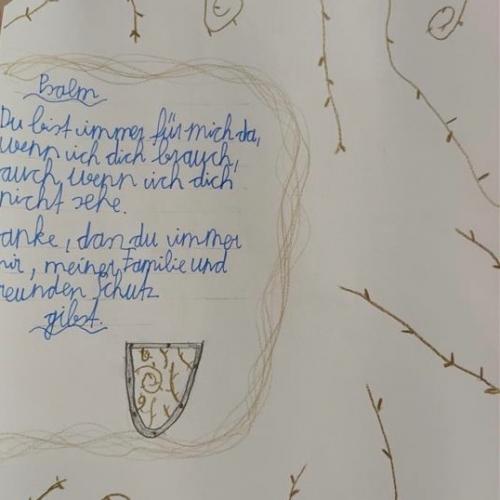 Psalm
Du bist immer für mich da,
wenn ich dich brauch,
auch wenn ich dich
nicht sehe.
anke, dan du immer
mir, meiner Familie und
reunden Schutz
gibst.